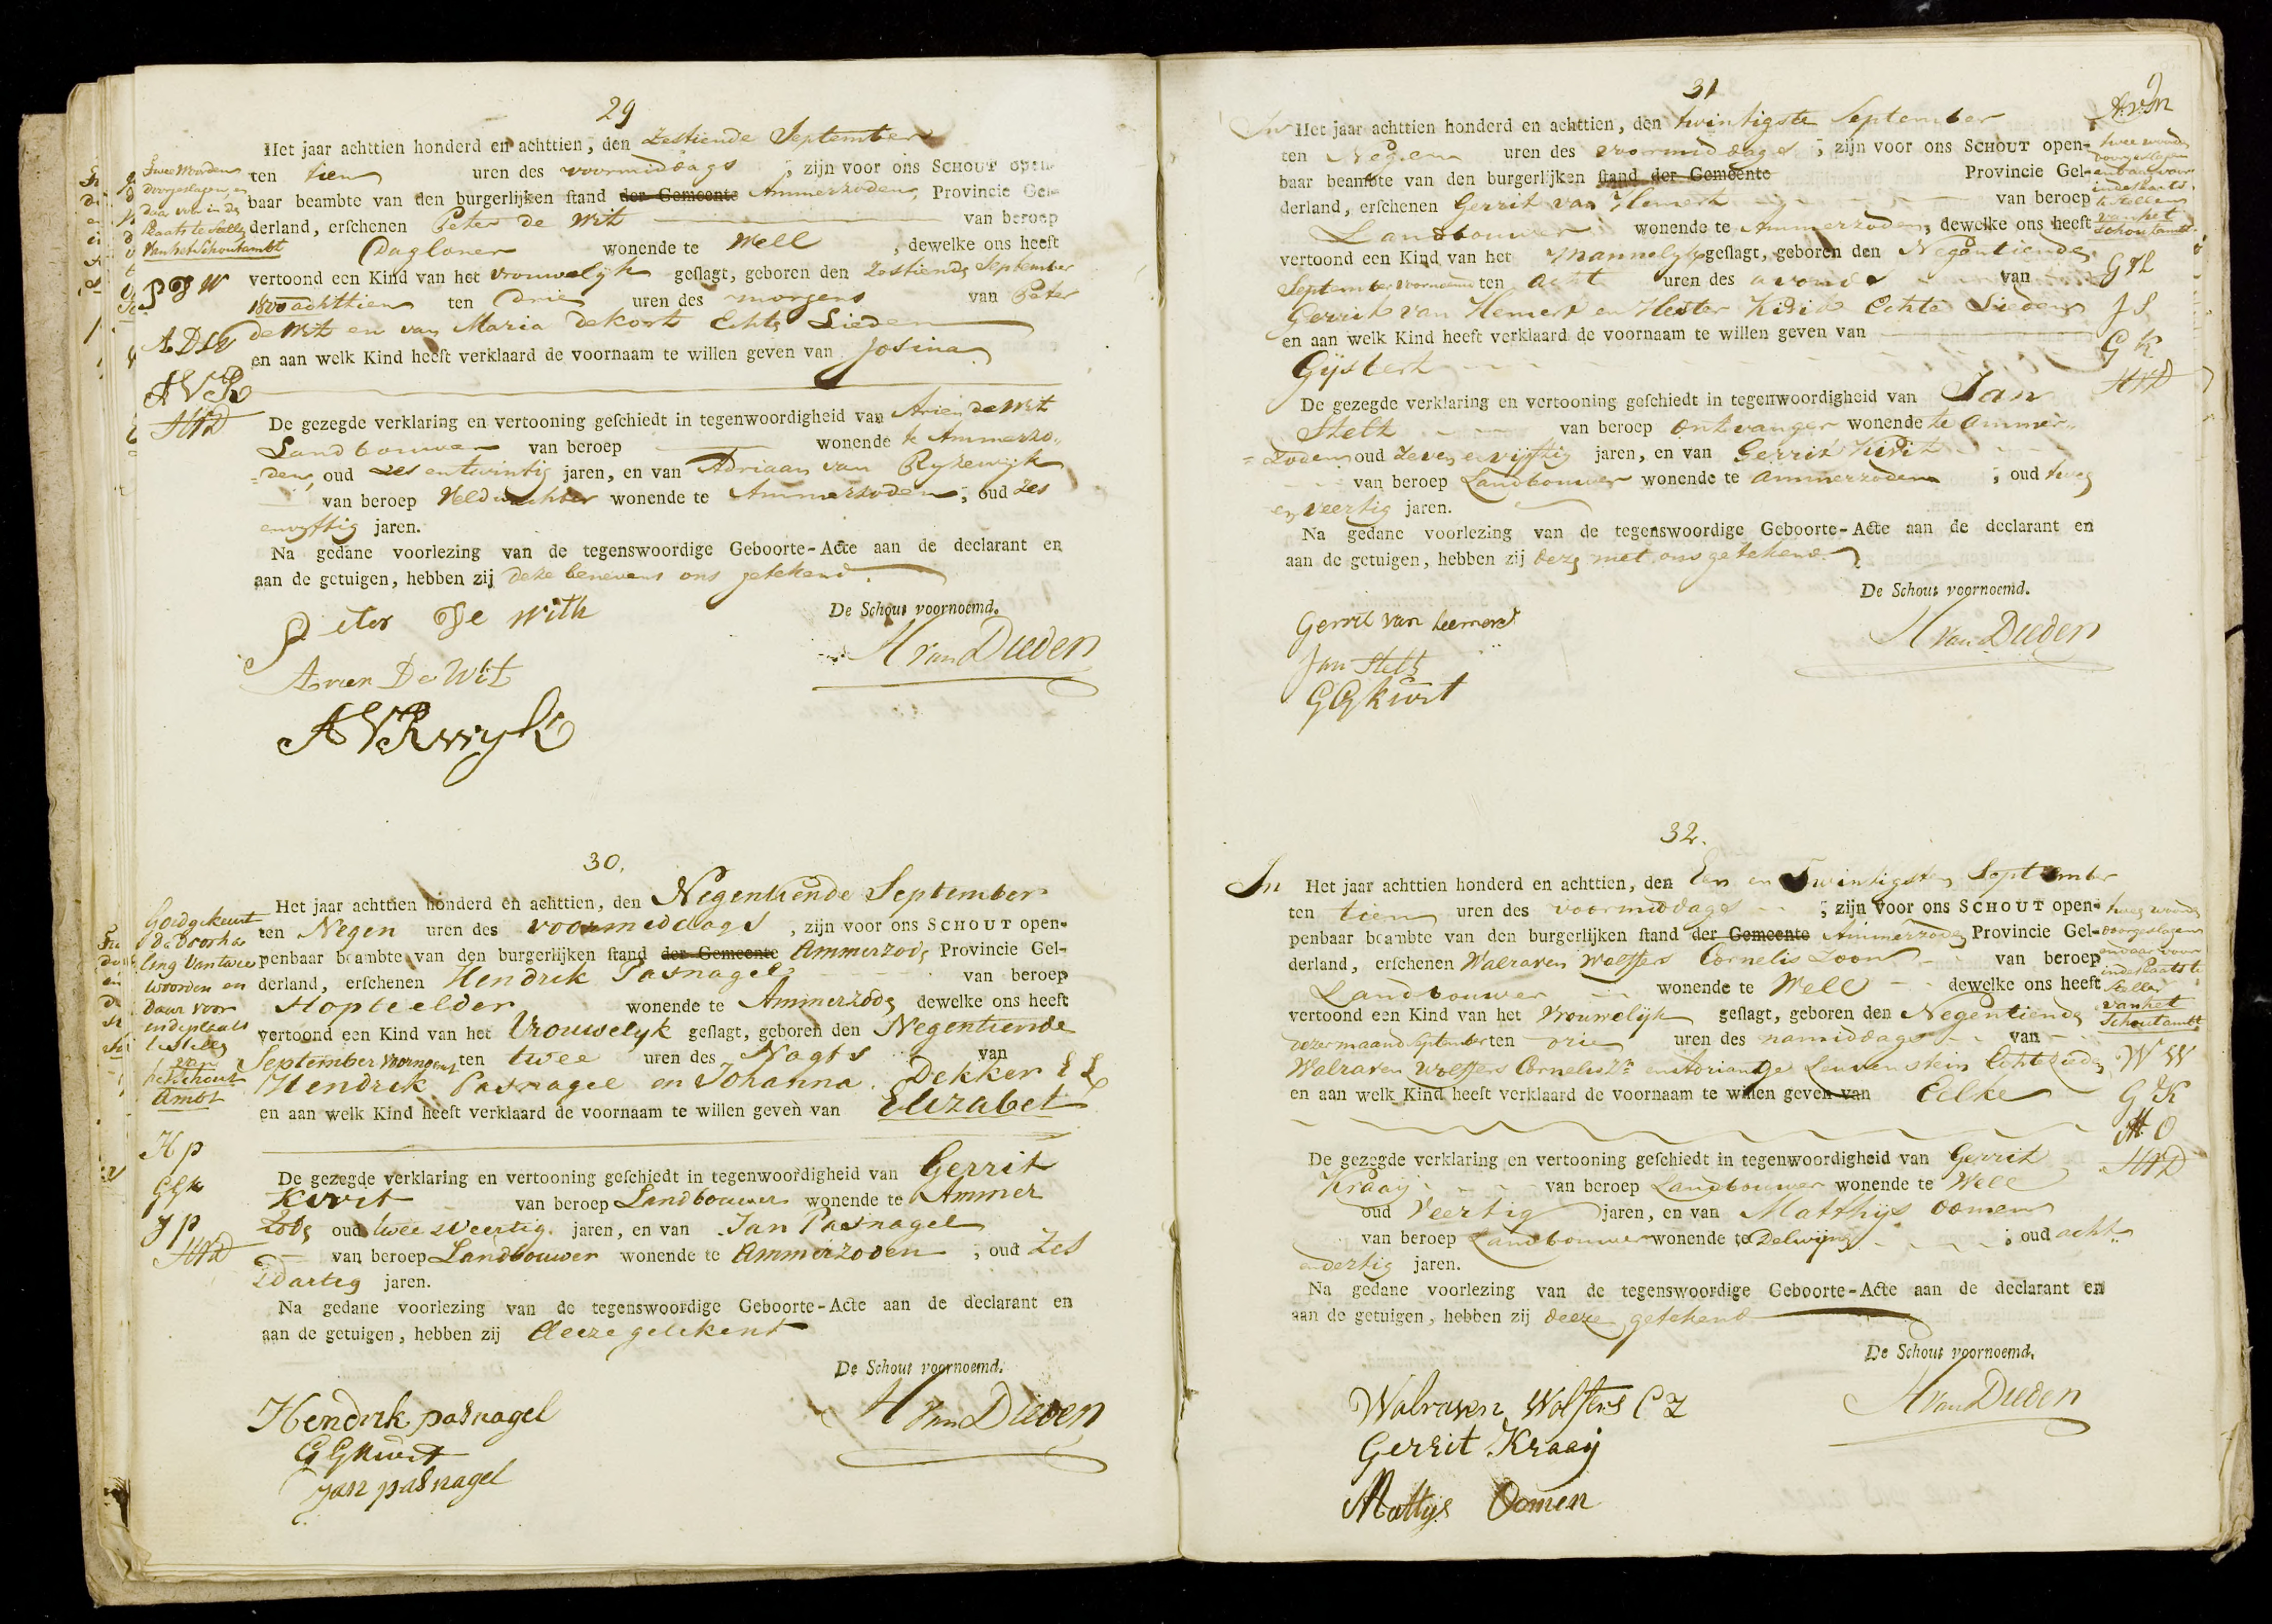 29
Het jaar achttien honderd en achttien, den Zestiende September
ten tien uren des voormiddags, zijn voor ons SCHOUT open-
baar beambte van den burgerlijken stand der Gemeente Ammerzoden, Provincie Gel-
derland, erschenen Peter de Wit van beroep
Dagloner wonende te Well, dewelke ons heeft
vertoond een Kind van het vrouwelyk geslagt, geboren den Zestiende September
1800 achttien ten drie uren des morgens van Peter
de Wit en van Maria de kort Echte Lieden
en aan welk Kind heeft verklaard de voornaam te willen geven van Josina
De gezegde verklaring en vertooning geschiedt in tegenwoordigheid van Arien de Wit
Landbouwer van beroep wonende te Ammerzo„
=den, oud zes en twintig jaren, en van Adriaan van Ryzewyk
van beroep Veldwachter wonende te Ammerzoden, oud zes
envyftig jaren.
Na gedane voorlezing van de tegenswoordige Geboorte-Acte aan de declarant en
aan de getuigen, hebben zij deze benevens ons getekend.
De Schout voornoemd.
Pieter De With
H van Dieden
Arien De Wit
AVRwyk
Twee Woorden
doorgeslagen, en
daar voor in de
plaats te stellen
van het Schoutambt
P D W
A D W
A V R
HVD
30.
Het jaar achttien honderd en achttien, den Negentiende September
ten Negen uren des voormiddags, zijn voor ons SCHOUT open-
penbaar beambte van den burgerlijken stand der Gemeente Ammerzode Provincie Gel-
derland, erschenen Hendrik Pasnagel van beroep
Hopteelder wonende te Ammerzode dewelke ons heeft
vertoond een Kind van het Vrouwelyk geslagt, geboren den Negentiende
September voornoemt ten twee uren des Nagts van
Hendrik Pasnagel en Johanna Dekker E L
en aan welk Kind heeft verklaard de voornaam te willen geven van Elizabet
De gezegde verklaring en vertooning geschiedt in tegenwoordigheid van Gerrit
Kivit van beroep Landbouwer wonende te Ammer
zode oud twee Veertig jaren, en van Jan Pasnagel
van beroep Landbouwer wonende te Ammerzoden; oud Zes
Dartig jaren.
Na gedane voorlezing van de tegenswoordige Geboorte-Acte aan de declarant en
aan de getuigen, hebben zij deeze getekent
De Schout voornoemd.
Hendrik pasnagel
H van Dieden
G G Kivit
Jan pasnagel
Goedgekeurt
de Doorha
ling van twee
woorden en
daar voor
in de plaats
te stellen
van
het Schout
Ambt
H p
G G K
J p
HVD
31
In Het jaar achttien honderd en achttien, den twintigste September
ten Negen uren des voormiddags; zijn voor ons SCHOUT open-
baar beambte van den burgerlijken stand der Gemeente Provincie Gel-
derland, erschenen Gerrit van Hemert van beroep
Landbouwer wonende te Ammerzoden, dewelke ons heeft
vertoond een Kind van het Mannelyk geslagt, geboren den Negentiende
September voornoemt ten acht uren des avonds van
Gerrit van Hemert en Hester Kivit Echte Lieden
en aan welk Kind heeft verklaard de voornaam te willen geven van
Gijsbert
De gezegde verklaring en vertooning geschiedt in tegenwoordigheid van Jan
Stelt van beroep ontvanger wonende te Ammer„
=zoden oud zeven envijftig jaren, en van Gerrit Kivit
van beroep Landbouwer wonende te Ammerzoden; oud twee
en veertig jaren.
Na gedane voorlezing van de tegenswoordige Geboorte-Acte aan de declarant en
aan de getuigen, hebben zij deze met ons getekend.
De Schout voornoemd.
Gerrit van heemert
H van Dieden
Jan Stelt
G G Kivit
twee woorden
doorgeslagen
en daar voor
in de plaats
te stellen
van het
Schoutambt
G V H
J S
G K
HVD
32.
In Het jaar achttien honderd en achttien, den Een en Twintigsten September
ten tien uren des voormiddags; zijn voor ons SCHOUT open-
penbaar beambte van den burgerlijken stand der Gemeente Ammerzoden Provincie Gel-
derland, erschenen Walraven Wolffers Cornelis Zoon van beroep
Landbouwer wonende te Well dewelke ons heeft
vertoond een Kind van het Vrouwelijk geslagt, geboren den Negentiende
dezer maand September ten drie uren des namiddags van
Walraven Wolffers Cornelis Zn en Adriantje Leuvenstein Echte Lieden
en aan welk Kind heeft verklaard de voornaam te willen geven van Eelke
De gezegde verklaring en vertooning geschiedt in tegenwoordigheid van Gerrit
Kraaij van beroep Landbouwer wonende te Well
oud Veertig jaren, en van Matthijs Oomen
van beroep Landbouwer wonende te Delwijnen; oud acht
endertig jaren.
Na gedane voorlezing van de tegenswoordige Geboorte-Acte aan de declarant en
aan de getuigen, hebben zij deeze getekend
De Schout voornoemd.
Walraven Wolfers C Z
H van Dieden
Gerrit Kraaij
Mattys Oomen
twee woorden
doorgeslagen
en daar voor
in de plaats te
stellen
van het
Schoutambt
W W
G K
M O
HVD